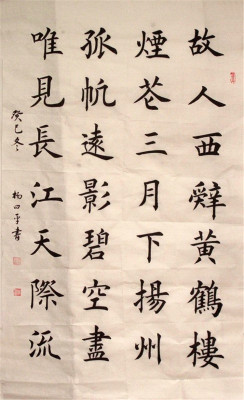 故人西辭黃鶴樓
煙花三月下揚州
孤帆遠影碧空盡
唯見長江天際流
癸巳冬